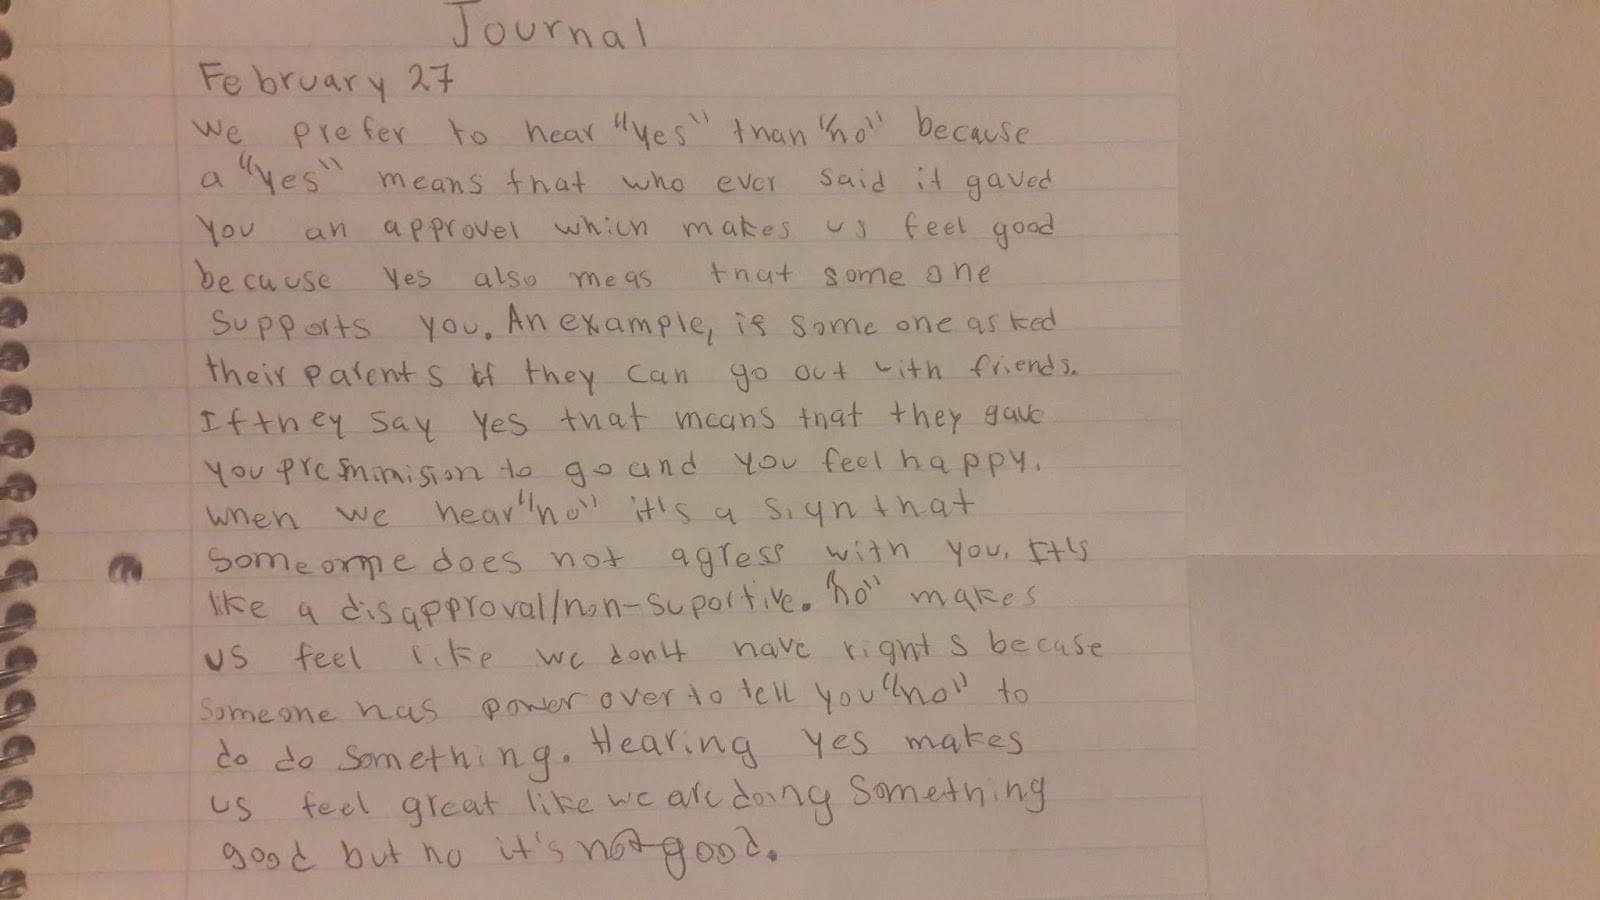 Journal
February 27
We prefer to hear "yes" than "no" because
a "yes" means that who ever said it gaved
you an approvel which makes us feel good
because yes also meas that some one
supports you. An example, if some one asked
their parents if they can go out with friends.
If they say yes that means that they gave
you to go and you feel happy.
When we hear "no" it's a sign that
someone does not agress with you. It's
like a disapproval/non-suportive. "no" makes
us feel like we don't have rights because
someone has power over to tell you "no" to
do do something. Hearing yes makes
us feel great like we are doing something
good but no it's not good.